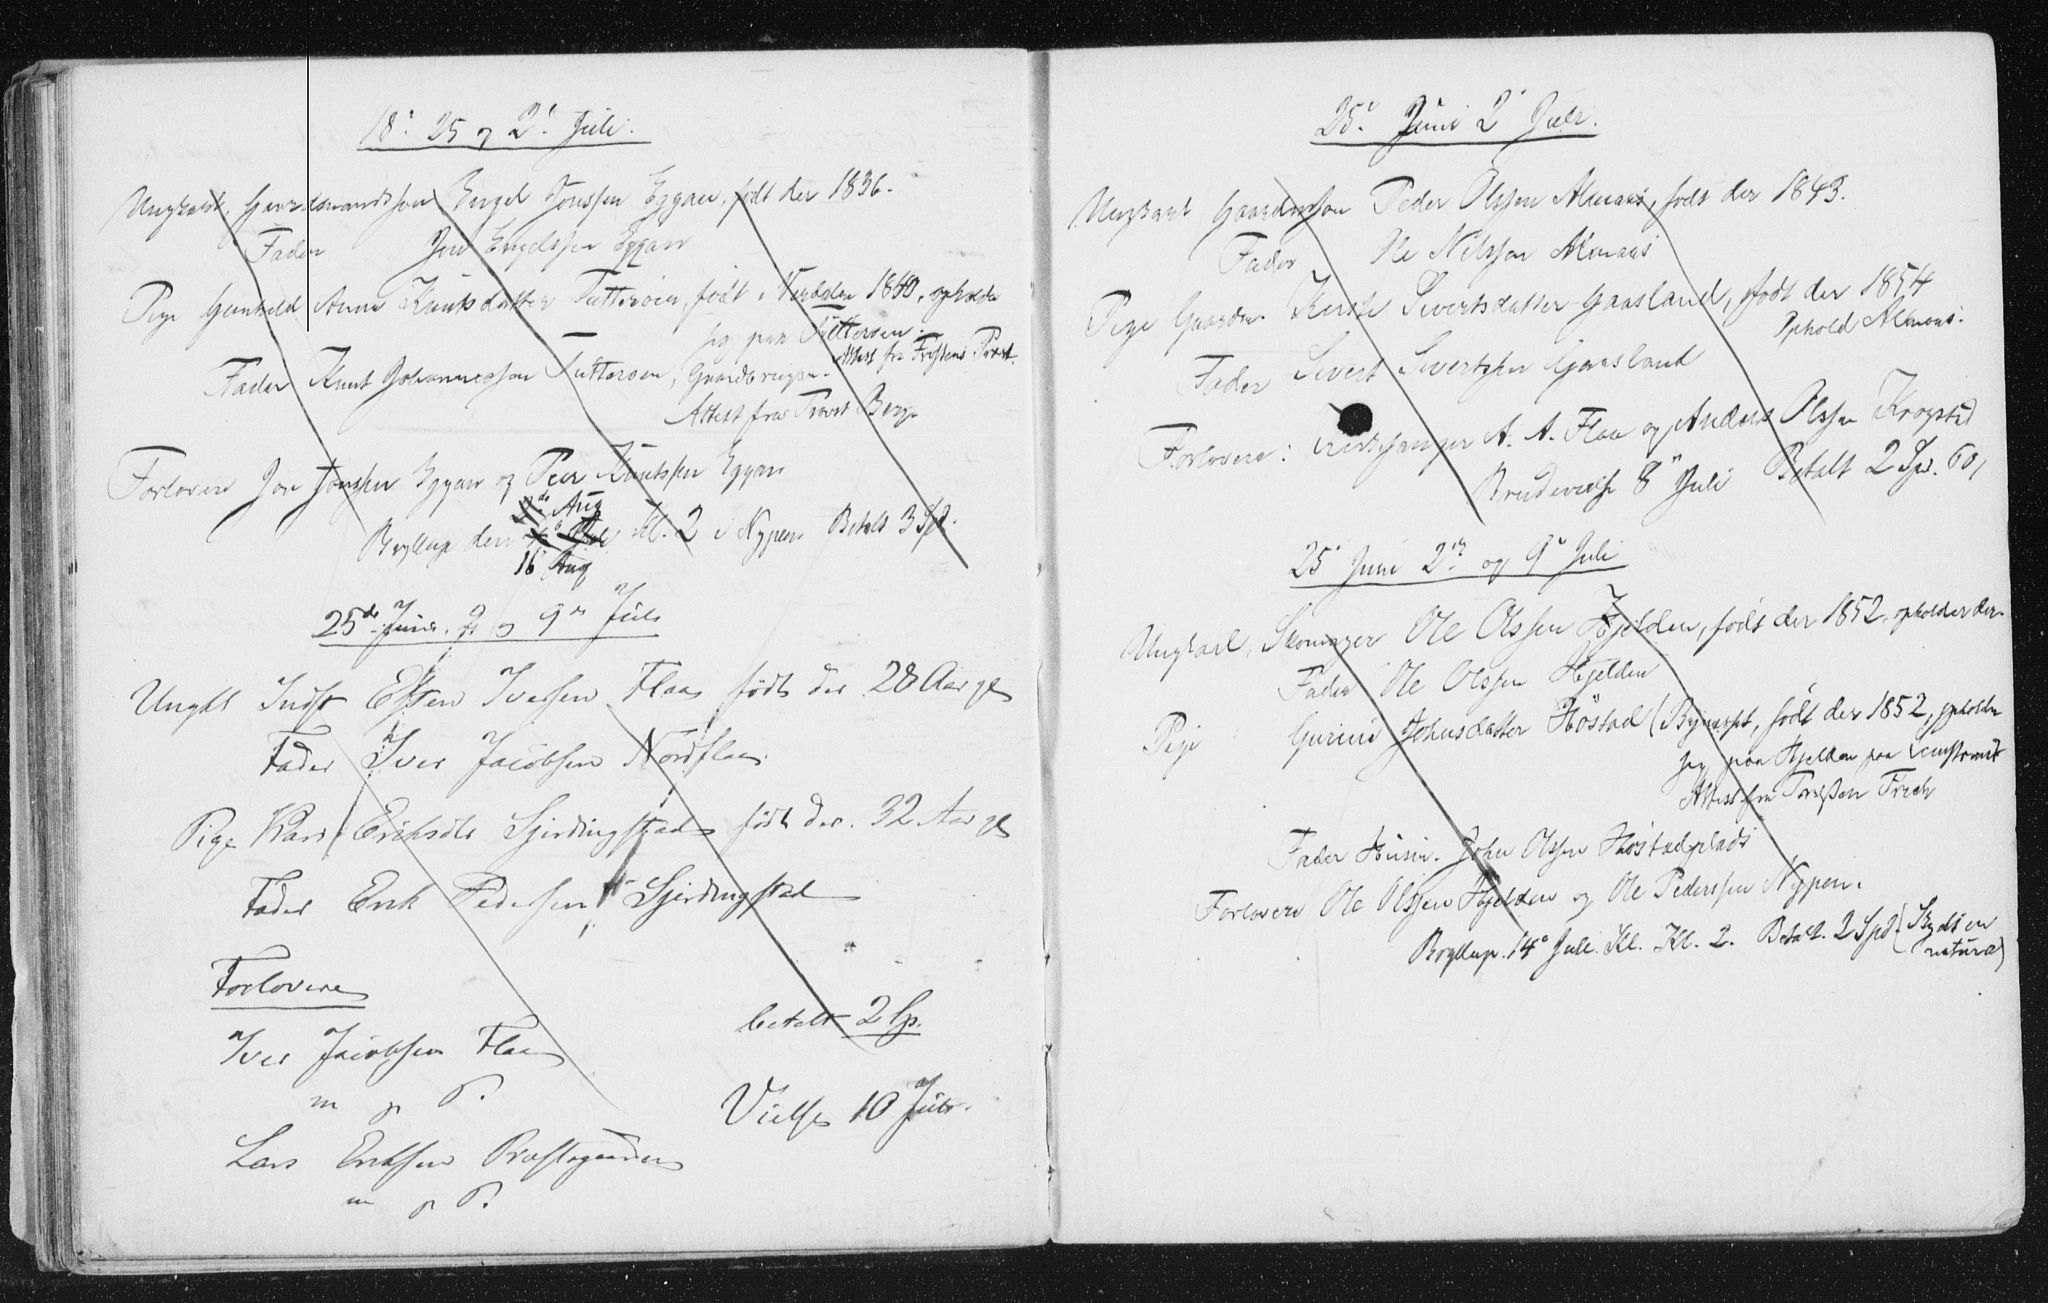 18de 25 og 2de Juli.
Ungkarl, Gaardmandssøn Engel Jonssen Eggan, født der 1836.
Fader Jon Engelssen Eggan
Pige Gunhild Anne Knutsdatter Tutterøen, født i Værdalen 1840, opholder
sig paa Tutterøen.
Attest fra Frostens Præst.
Fader Knut Johannessen Tutterøen, Gaardbruger.
Attest fra Provst Berg
Forlovere Jon Jonssen Eggan og Peer Knutssen Eggan
de Aug
Bryllup den Kl. 2 i Nypen. Betalt 3 Spd.
16 Aug
25de Juni, 2 og 9de Juli
Ungkl Indst Esten Iversen Flaa født der 28 Aar gl
Fader Iver Jacobsen Nordflaa
Pige Kari Eriksdtr Gjerdingstad født der. 32 Aar gl
Fader Erik Pedersen Gjerdingstad
Forlovere
Iver Jacobsen Flaa
betalt 2 Sp.
m p P.
Vielse 10 Juli.
Lars Eriksen Præstegaarden
m p P.
25de Juni 2 Juli.
Ungkarl Gaardmssøn Peder Olssen Almaas, født der 1843.
Fader Ole Nilssen Almaas
Pige Gaardm. Kirsti Sivertsdatter Gaasland, født der 1854
Ophold Almaas.
Fader Sivert Sivertssen Gaasland
Forlovere: Kirkesanger A. A. Flaa og Anders Olssen Krogstad
Brudevielse 8de Juli Betalt 2 Spd. 60,
25 Juni 2den og 9de Juli
Ungkarl, Skomager Ole Olssen Hjelden, født der 1852, opholder der.
Fader Ole Olssen Hjelden
Pige Gurine Johnsdatter Høstad (Bynesset, født der 1852, opholder
sig paa Hjelden paa
Attest fra
Fader Husm. John Olssen Høstadplads
Forlovere Ole Olssen Hjelden og Ole Pederssen Nypen.
Bryllup 14de Juli. Kl. Kl. 2. Betalt. 2 Spd. (
natura)